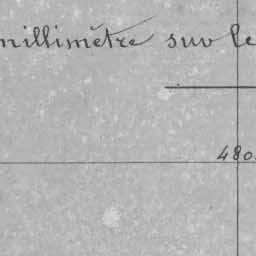 millimètre sur le
480